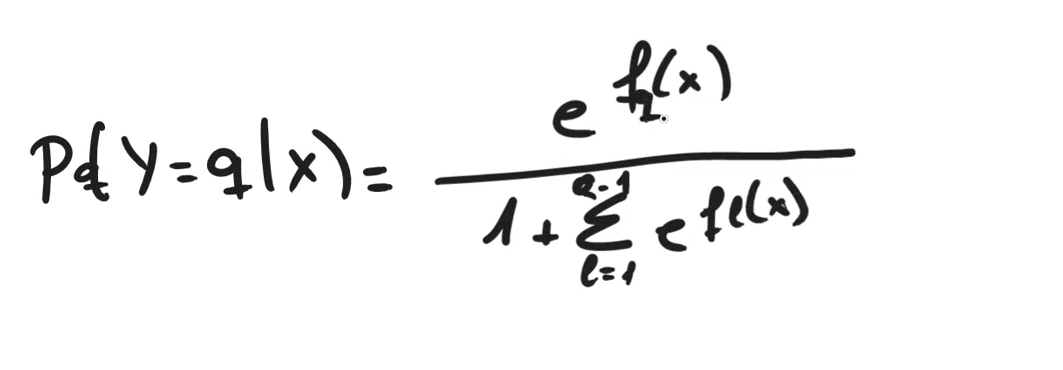 P(Y=q|x) = e^{f_q(x)} / (1 + Σ_{l=1}^{Q-1} e^{f_l(x)})